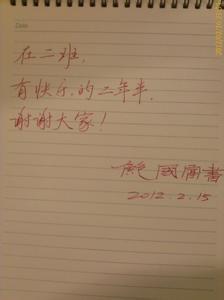 Date
在二班,
有快乐的二年半.
谢谢大家!
鲍國富書
2012.2.15